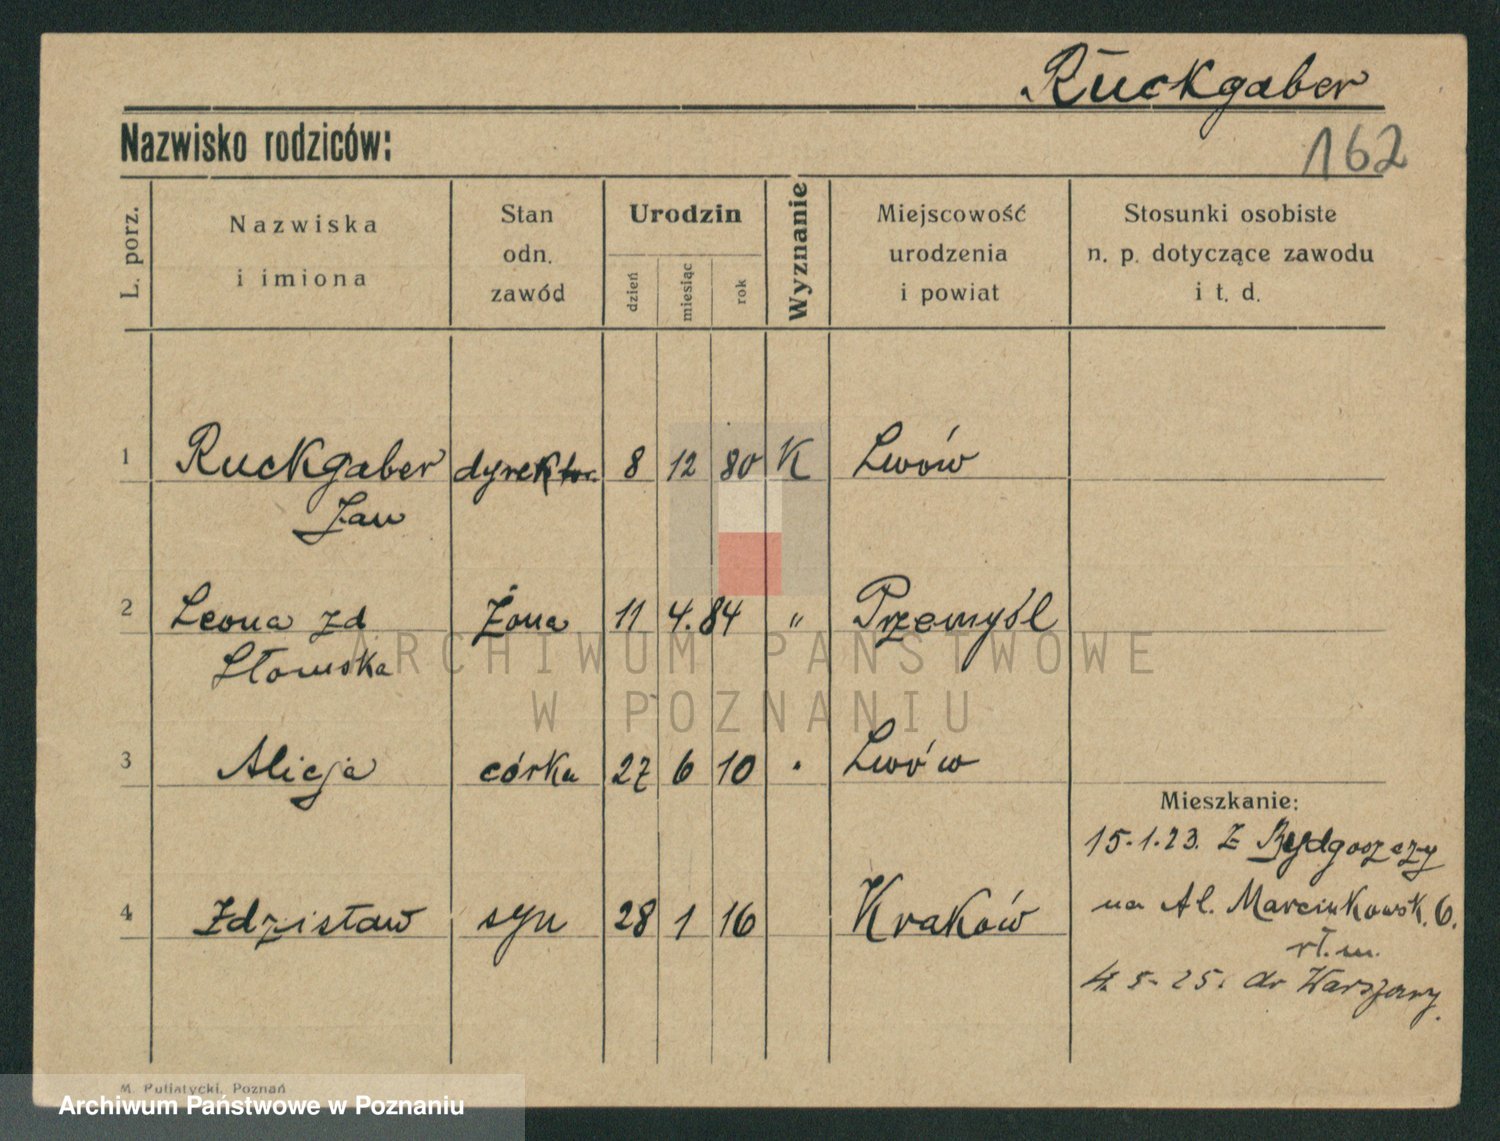 Ruckgaber
162
Nazwisko rodziców:
L. porz.
Nazwiska
i imiona
Stan
odn.
zawód
Urodzin
dzień
miesiąc
rok
Wyznanie
Miejscowość
urodzenia
i powiat
Stosunki osobiste
n. p. dotyczące zawodu
i t. d.
1 Ruckgaber dyrektor 8 12 80 K Lwów
Jan
2 Leona zd Żona 11 4. 84 " Przemyśl
Słomska
ARCHIWUM PAŃSTWOWE
W POZNANIU
3 Alicja córka 27 6 10 Lwów
Mieszkanie:
15.1.23. Z Bydgoszczy
4 Zdzisław syn 28 1 16 Kraków
na Al. Marcinkowsk. 6.
4. 5. 25. do Warszawy.
M. Putiatycki, Poznań
Archiwum Państwowe w Poznaniu